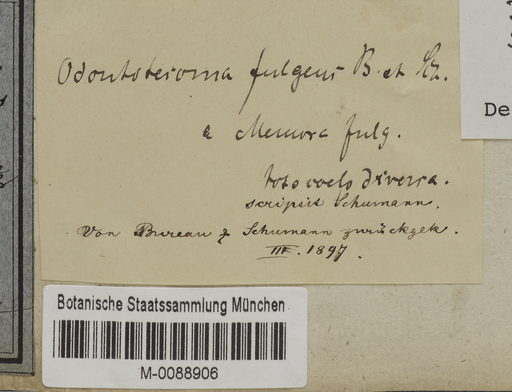 Odontotecoma fulgens B. et Sch.
a Memora fulg.
toto coelo diversa.
scripsit Schumann.
Von Bureau & Schumann zurückgek.
III. 1897.
De
Botanische Staatssammlung München
M-0088906